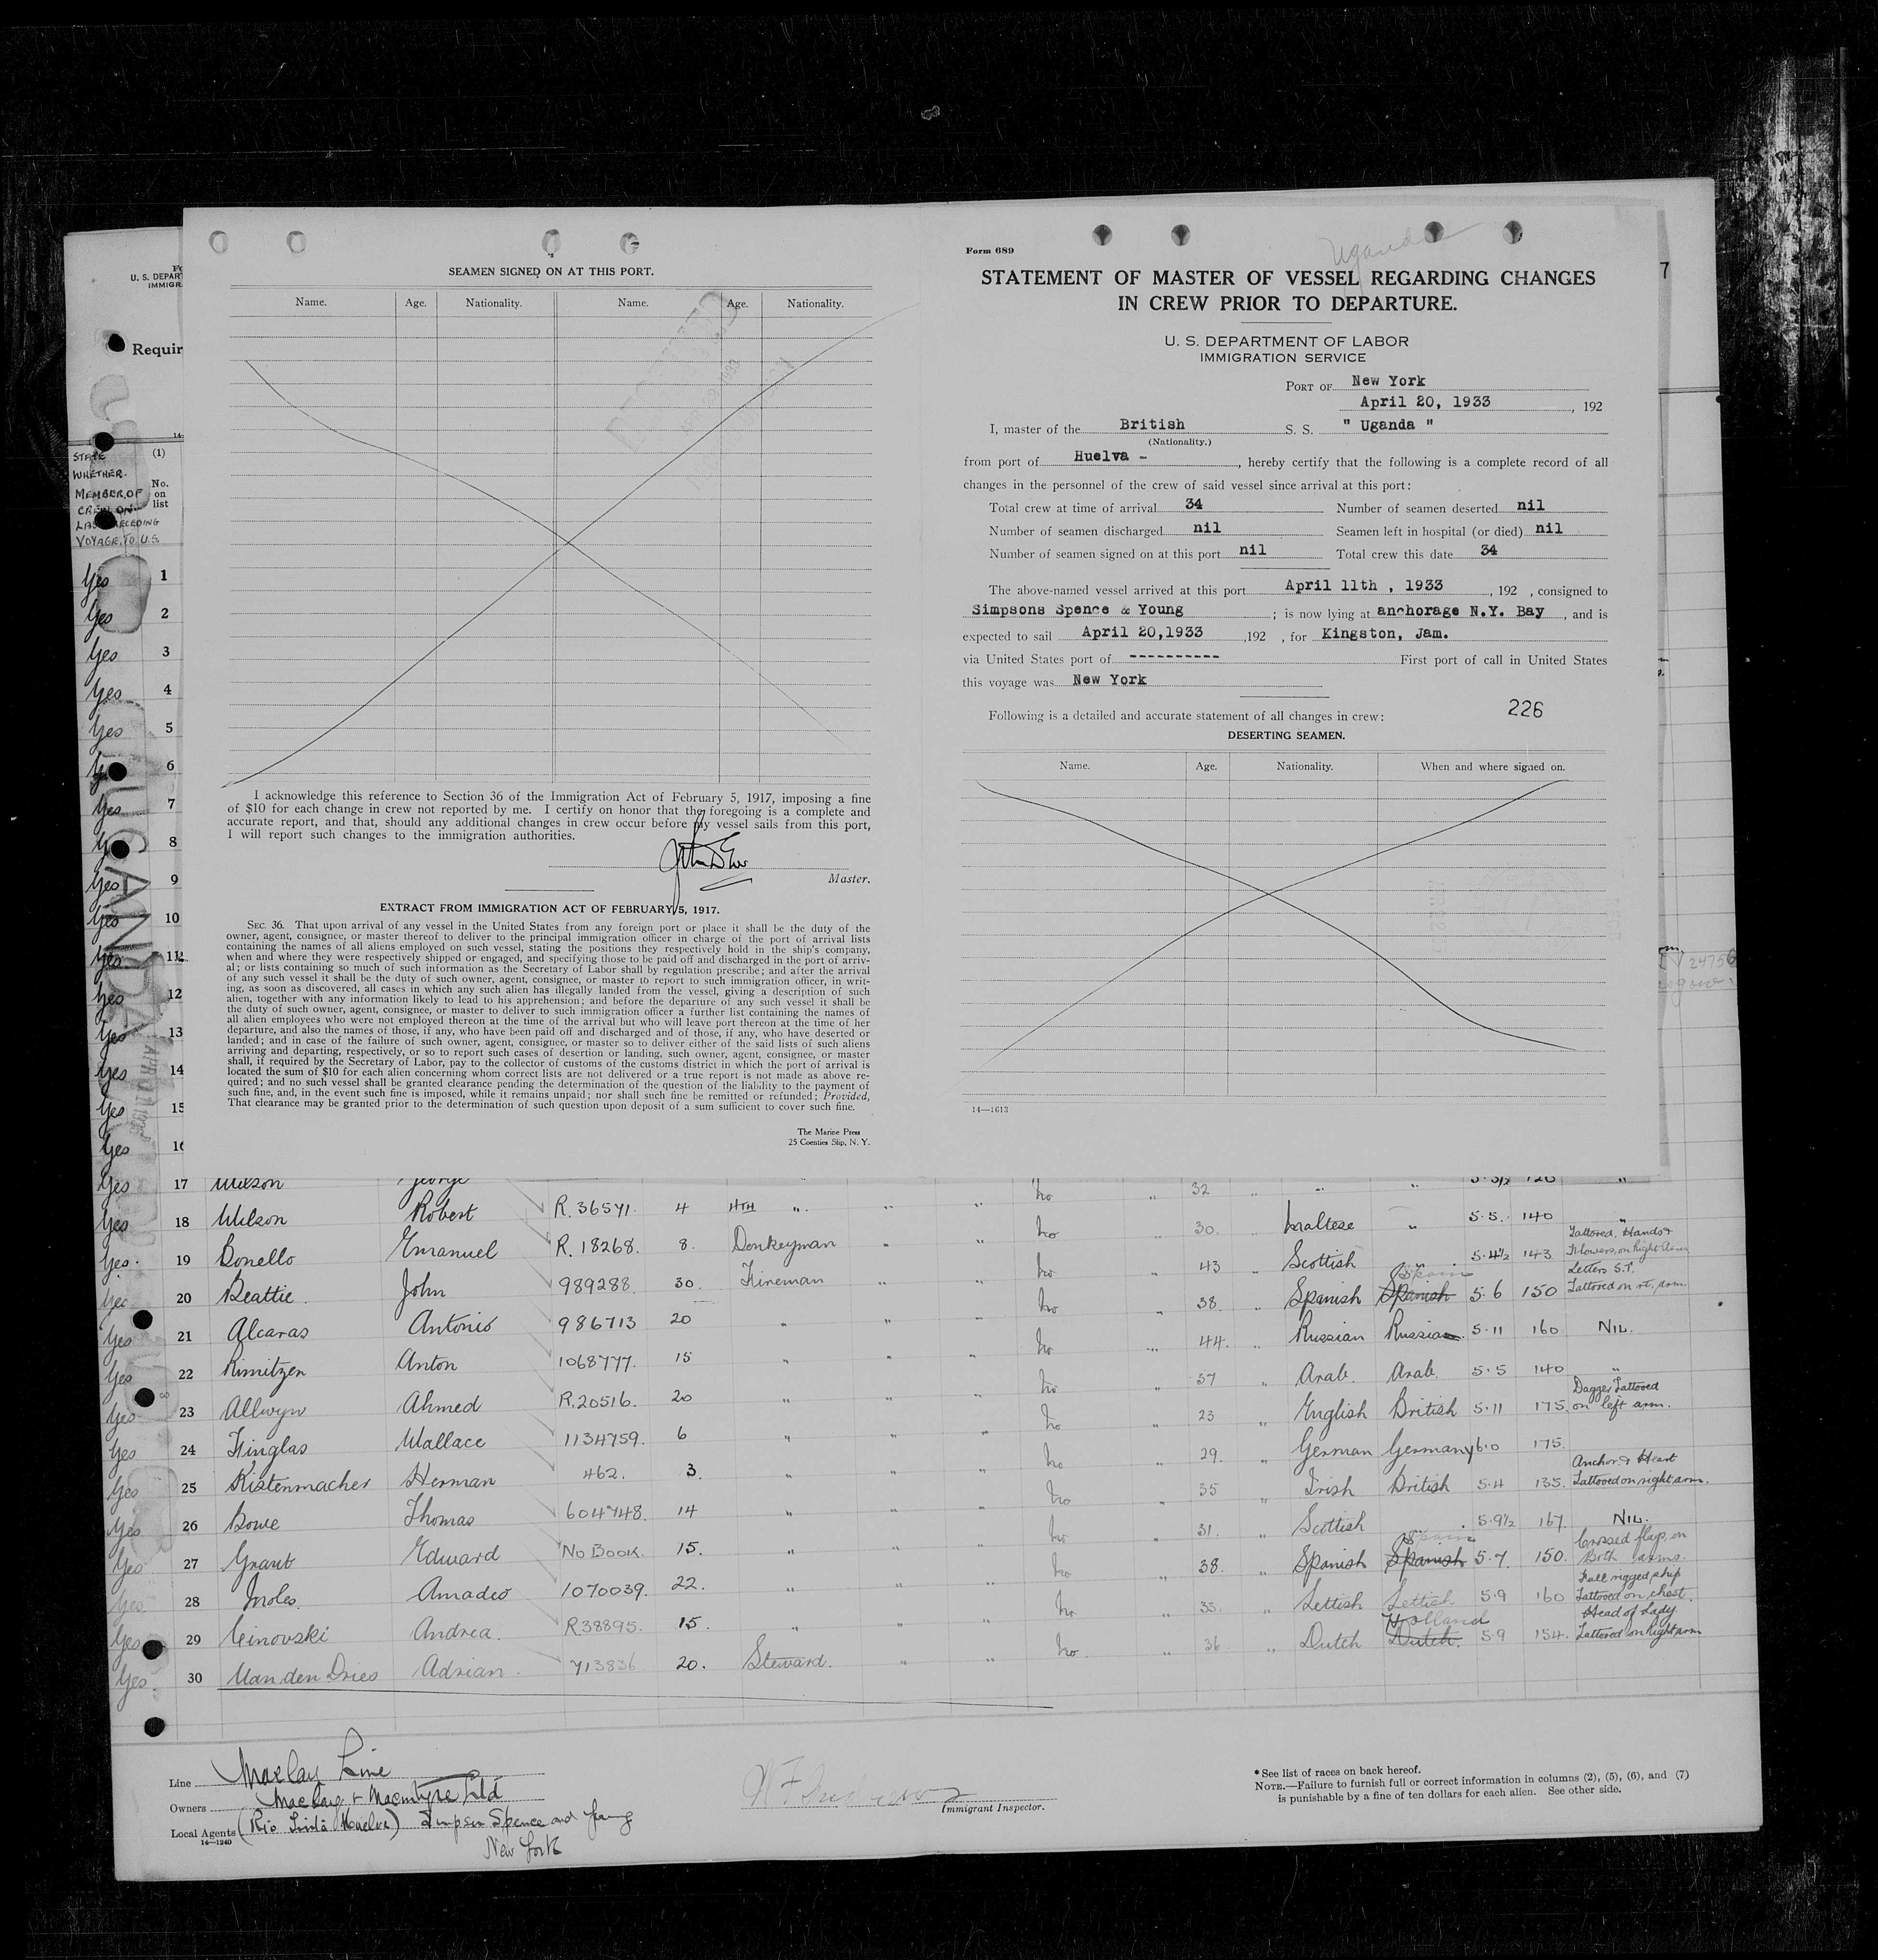 SEAMEN SIGNED ON AT THIS PORT.
Name. Age. Nationality. Name. Age. Nationality.
I acknowledge this reference to Section 36 of the Immigration Act of February 5, 1917, imposing a fine
of $10 for each change in crew not reported by me. I certify on honor that the foregoing is a complete and
accurate report, and that, should any additional changes in crew occur before my vessel sails from this port,
I will report such changes to the immigration authorities.
Master.
EXTRACT FROM IMMIGRATION ACT OF FEBRUARY 5, 1917.
SEC. 36. That upon arrival of any vessel in the United States from any foreign port or place it shall be the duty of the
owner, agent, consignee, or master thereof to deliver to the principal immigration officer in charge of the port of arrival lists
containing the names of all aliens employed on such vessel, stating the positions they respectively hold in the ship's company,
when and where they were respectively shipped or engaged, and specifying those to be paid off and discharged in the port of arriv-
al; or lists containing so much of such information as the Secretary of Labor shall by regulation prescribe; and after the arrival
of any such vessel it shall be the duty of such owner, agent, consignee, or master to report to such immigration officer, in writ-
ing, as soon as discovered, all cases in which any such alien has illegally landed from the vessel, giving a description of such
alien, together with any information likely to lead to his apprehension; and before the departure of any such vessel it shall be
the duty of such owner, agent, consignee, or master to deliver to such immigration officer a further list containing the names of
all alien employees who were not employed thereon at the time of the arrival but who will leave port thereon at the time of her
departure, and also the names of those, if any, who have been paid off and discharged and of those, if any, who have deserted or
landed; and in case of the failure of such owner, agent, consignee, or master so to deliver either of the said lists of such aliens
arriving and departing, respectively, or so to report such cases of desertion or landing, such owner, agent, consignee, or master
shall, if required by the Secretary of Labor, pay to the collector of customs of the customs district in which the port of arrival is
located the sum of $10 for each alien concerning whom correct lists are not delivered or a true report is not made as above re-
quired; and no such vessel shall be granted clearance pending the determination of the question of the liability to the payment of
such fine, and, in the event such fine is imposed, while it remains unpaid; nor shall such fine be remitted or refunded; Provided,
That clearance may be granted prior to the determination of such question upon deposit of a sum sufficient to cover such fine.
The Marine Press
25 Coenties Slip, N. Y.
Uganda
Form 689
STATEMENT OF MASTER OF VESSEL REGARDING CHANGES
IN CREW PRIOR TO DEPARTURE.
U. S. DEPARTMENT OF LABOR
IMMIGRATION SERVICE
PORT OF New York
April 20, 1933, 192
I, master of the British S. S. " Uganda "
(Nationality.)
from port of Huelva - , hereby certify that the following is a complete record of all
changes in the personnel of the crew of said vessel since arrival at this port:
Total crew at time of arrival 34 Number of seamen deserted nil
Number of seamen discharged nil Seamen left in hospital (or died) nil
Number of seamen signed on at this port nil Total crew this date 34
The above-named vessel arrived at this port April 11th , 1933, 192 , consigned to
Simpsons Spence & Young ; is now lying at anchorage N.Y. Bay, and is
expected to sail April 20,1933 ,192 , for Kingston, Jam.
via United States port of ---------- First port of call in United States
this voyage was New York
226
Following is a detailed and accurate statement of all changes in crew:
DESERTING SEAMEN.
Name. Age. Nationality. When and where signed on.
14—1613
U. S. DEPAR
IMMIGR
Requir
STATE
WHETHER
MEMBER OF
CREW ON
LAST PRECEDING
VOYAGE TO U.S.
(1)
No.
on
list
Yes 1
Yes 2
Yes 3
Yes 4
Yes 5
Yes 6
Yes 7
Yes 8
Yes 9
Yes 10
Yes 11
Yes 12
Yes 13
Yes 14
Yes 15
Yes 16
UGANDA
7
24756
Yes 17 Wilson George No 32
Yes 18 Wilson Robert R.36571. 4 4TH " " " No " 30 " Maltese " 5.5. 140 "
Yes 19 Bonello Emanuel R.18268. 8. Donkeyman " " No " 43 " Scottish " 5.4½ 143 Tattooed, Hands & Flowers, on Right Arm
Yes 20 Beattie John 989288 30. Fireman " " No " 38 " Spanish Spanish Spain 5.6 150 Letters S.T. Tattooed on rt. arm
Yes 21 Alcaras Antonio 986713 20 " " " No " 44 " Russian Russian 5.11 160 NIL.
Yes 22 Rimitzen Anton 1068777. 15 " " " No " 37 " Arab. Arab. 5.5 140 "
Yes 23 Allwyn Ahmed R.20516. 20 " " " No " 23 " English British 5.11 175 Dagger Tattooed on left arm.
Yes 24 Finglas Wallace 1134759. 6 " " " No " 29. " German Germany 6.0 175
Yes 25 Kistenmacher Herman 462. 3. " " " No " 35 " Irish British 5.4 135. Anchor & Heart Tattooed on right arm.
Yes 26 Bowe Thomas 604748. 14 " " " No " 31. " Scottish " 5.9½ 167. NIL.
Yes 27 Grant Edward No Book. 15. " " " No " 38. " Spanish Spanish Spain 5.7 150. Crossed flags on Both arms.
Yes 28 Moles. Amadeo 1070039. 22. " " " No " 33. " Lettish Lettish 5.9 160 Full rigged ship Tattooed on chest.
Yes 29 Cinovski Andrea. R38895. 15. " " " No " 36 " Dutch Dutch. Holland 5.9 154. Head of Lady Tattooed on Right arm
Yes 30 Van den Dries Adrian. 713836 20. Steward. " " No
Line Maclay Line
Owners Maclay & Macintyre Ltd
Local Agents (Rio Tinto Huelva) Simpson Spence and Young
14—1240
New York
Immigrant Inspector.
* See list of races on back hereof.
NOTE.—Failure to furnish full or correct information in columns (2), (5), (6), and (7)
is punishable by a fine of ten dollars for each alien. See other side.